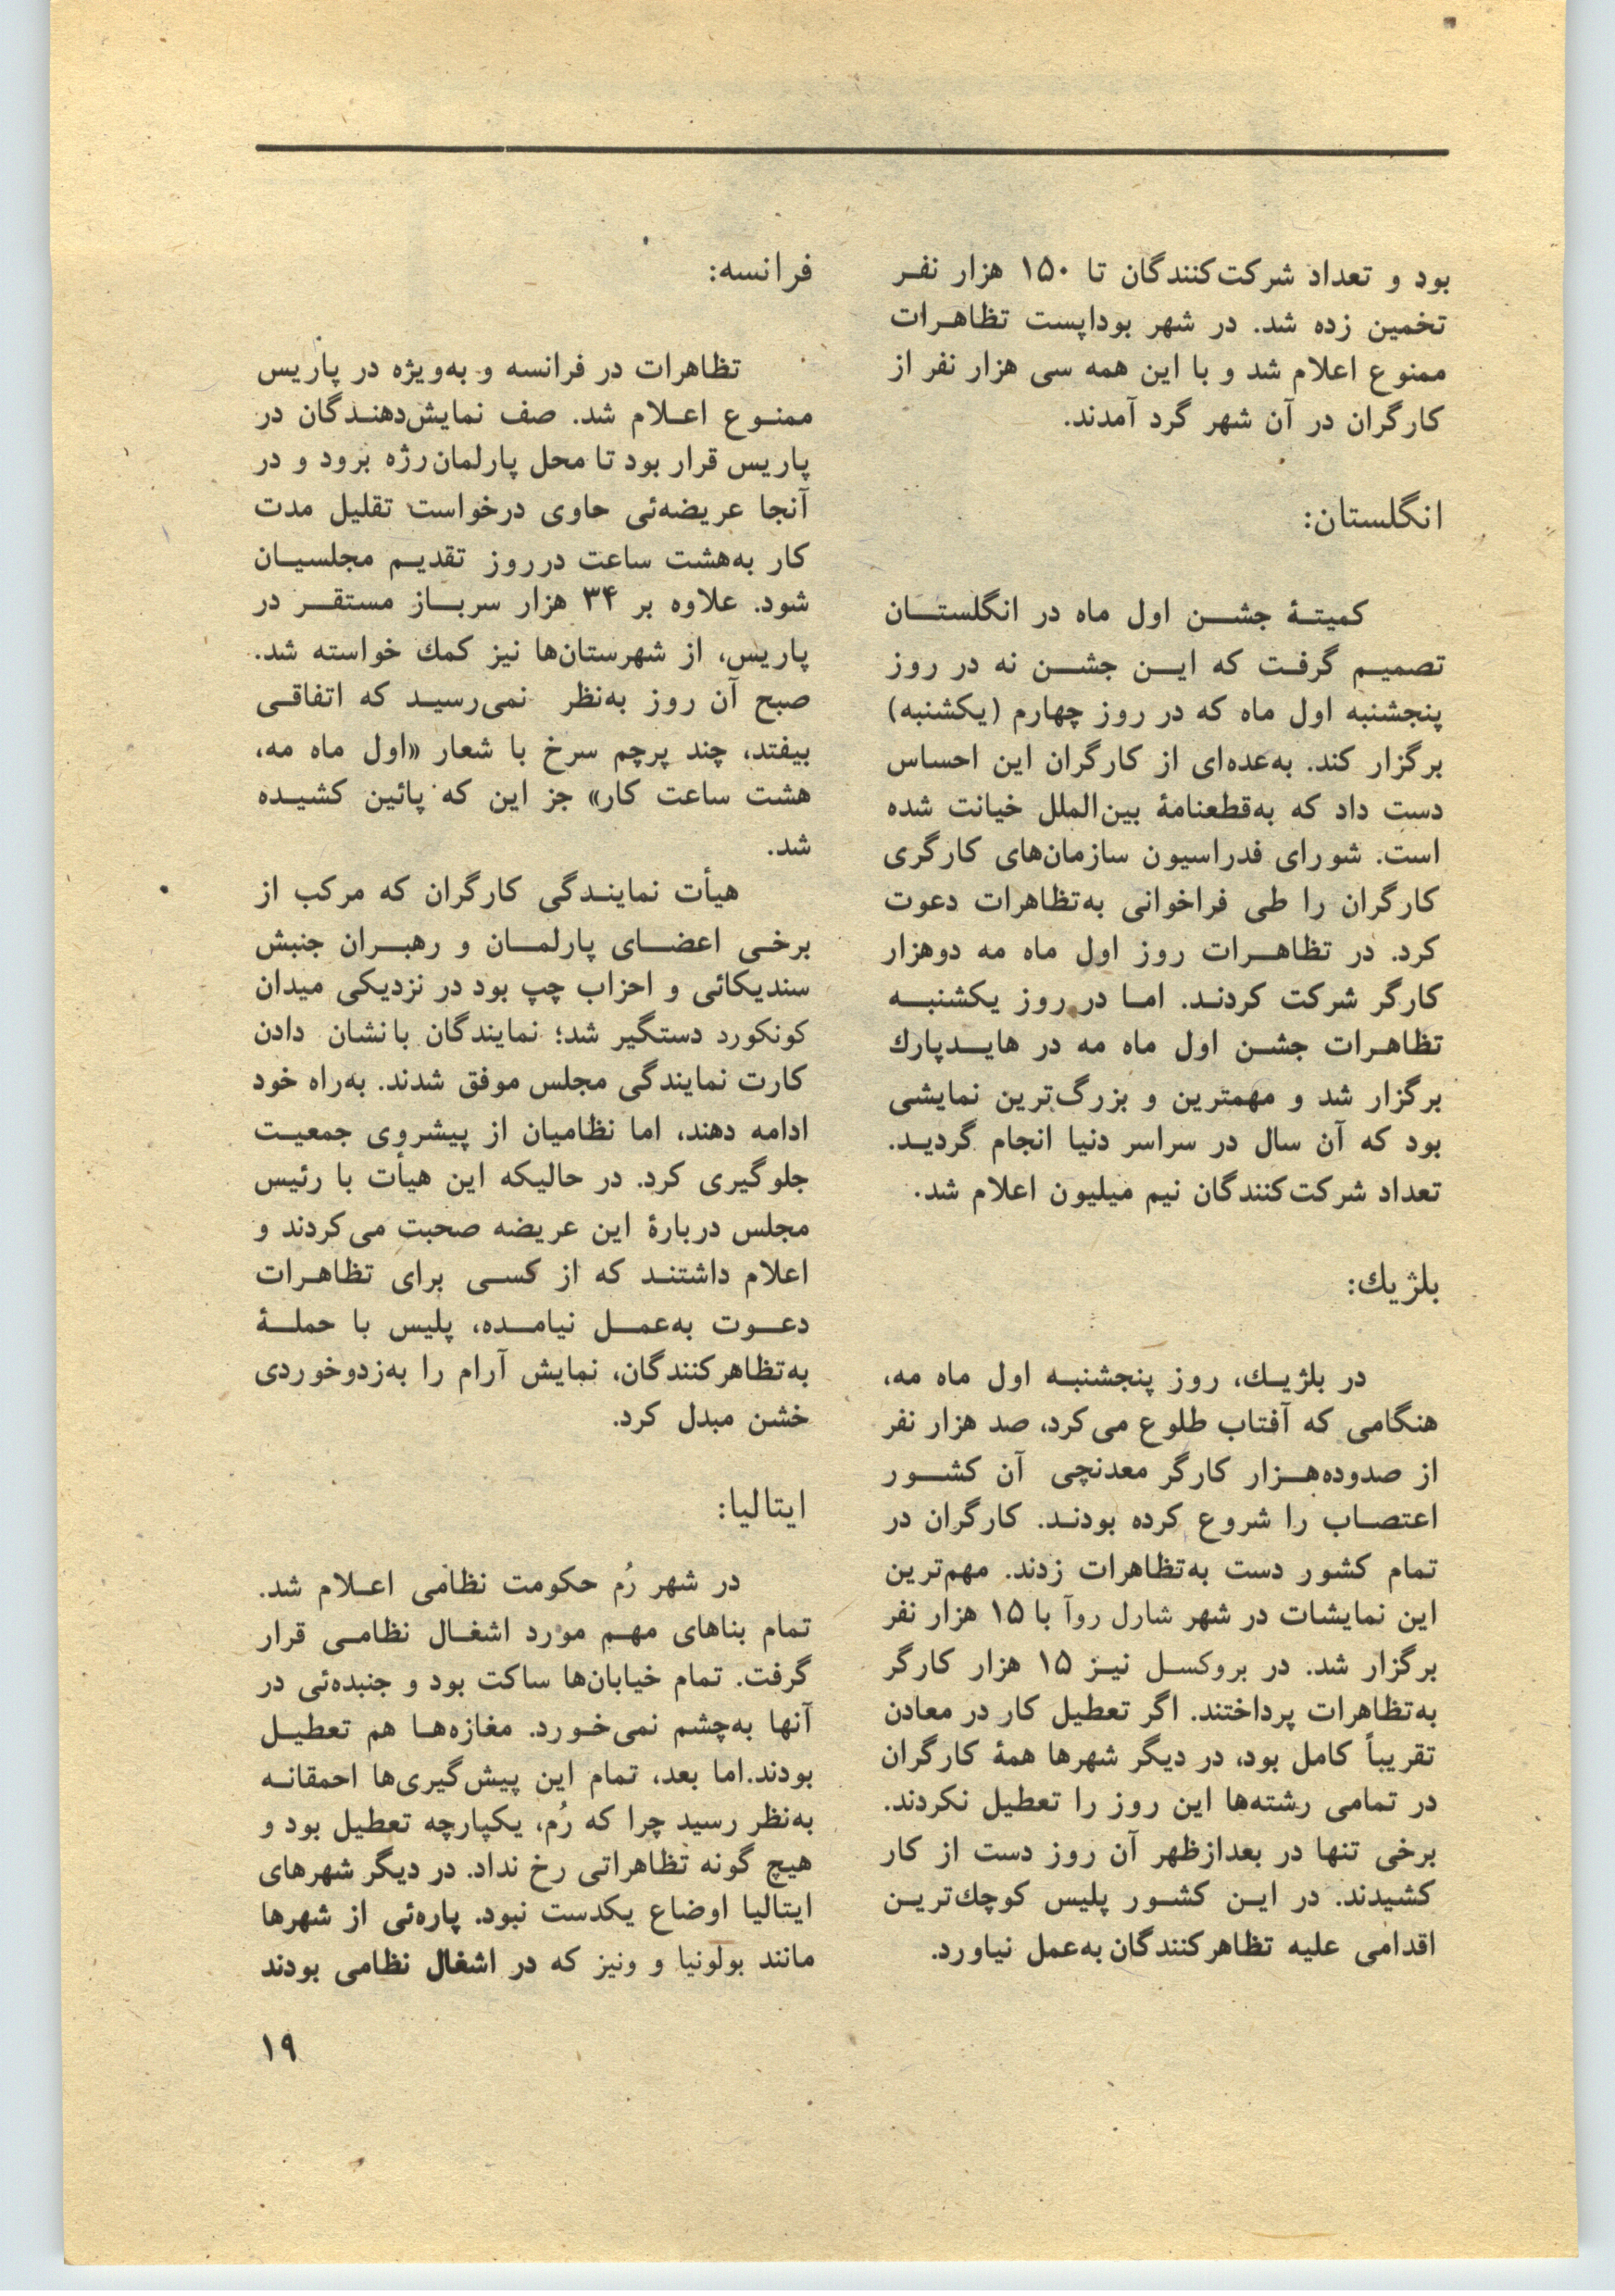 بود و تعداد شرکت‌کنندگان تا ۱۵۰ هزار نفر
تخمین زده شد. در شهر بوداپست تظاهرات
ممنوع اعلام شد و با این همه سی هزار نفر از
کارگران در آن شهر گرد آمدند.
انگلستان:
کمیتهٔ جشن اول ماه در انگلستان
تصمیم گرفت که این جشن نه در روز
پنجشنبه اول ماه که در روز چهارم (یکشنبه)
برگزار کند. به‌عده‌ای از کارگران این احساس
دست داد که به‌قطعنامهٔ بین‌الملل خیانت شده
است. شورای فدراسیون سازمان‌های کارگری
کارگران را طی فراخوانی به‌تظاهرات دعوت
کرد. در تظاهرات روز اول ماه مه دوهزار
کارگر شرکت کردند. اما در روز یکشنبه
تظاهرات جشن اول ماه مه در هایدپارك
برگزار شد و مهمترین و بزرگ‌ترین نمایشی
بود که آن سال در سراسر دنیا انجام گردید.
تعداد شرکت‌کنندگان نیم میلیون اعلام شد.
بلژیك:
در بلژیك، روز پنجشنبه اول ماه مه،
هنگامی که آفتاب طلوع می‌کرد، صد هزار نفر
از صدوده‌هزار کارگر معدنچی آن کشور
اعتصاب را شروع کرده بودند. کارگران در
تمام کشور دست به‌تظاهرات زدند. مهم‌ترین
این نمایشات در شهر شارل روآ با ۱۵ هزار نفر
برگزار شد. در بروکسل نیز ۱۵ هزار کارگر
به‌تظاهرات پرداختند. اگر تعطیل کار در معادن
تقریباً کامل بود، در دیگر شهرها همهٔ کارگران
در تمامی رشته‌ها این روز را تعطیل نکردند.
برخی تنها در بعدازظهر آن روز دست از کار
کشیدند. در این کشور پلیس کوچك‌ترین
اقدامی علیه تظاهرکنندگان به‌عمل نیاورد.
فرانسه:
تظاهرات در فرانسه و به‌ویژه در پاریس
ممنوع اعلام شد. صف نمایش‌دهندگان در
پاریس قرار بود تا محل پارلمان رژه برود و در
آنجا عریضه‌ئی حاوی درخواست تقلیل مدت
کار به‌هشت ساعت درروز تقدیم مجلسیان
شود. علاوه بر ۳۴ هزار سرباز مستقر در
پاریس، از شهرستان‌ها نیز کمك خواسته شد.
صبح آن روز به‌نظر نمی‌رسید که اتفاقی
بیفتد، چند پرچم سرخ با شعار «اول ماه مه،
هشت ساعت کار» جز این که پائین کشیده
شد.
هیأت نمایندگی کارگران که مرکب از
برخی اعضای پارلمان و رهبران جنبش
سندیکائی و احزاب چپ بود در نزدیکی میدان
کونکورد دستگیر شد؛ نمایندگان با نشان دادن
کارت نمایندگی مجلس موفق شدند. به‌راه خود
ادامه دهند، اما نظامیان از پیشروی جمعیت
جلوگیری کرد. در حالیکه این هیأت با رئیس
مجلس دربارهٔ این عریضه صحبت می‌کردند و
اعلام داشتند که از کسی برای تظاهرات
دعوت به‌عمل نیامده، پلیس با حملهٔ
به‌تظاهرکنندگان، نمایش آرام را به‌زدوخوردی
خشن مبدل کرد.
ایتالیا:
در شهر رُم حکومت نظامی اعلام شد.
تمام بناهای مهم مورد اشغال نظامی قرار
گرفت. تمام خیابان‌ها ساکت بود و جنبده‌ئی در
آنها به‌چشم نمی‌خورد. مغازه‌ها هم تعطیل
بودند. اما بعد، تمام این پیش‌گیری‌ها احمقانه
به‌نظر رسید چرا که رُم، یکپارچه تعطیل بود و
هیچ گونه تظاهراتی رخ نداد. در دیگر شهرهای
ایتالیا اوضاع یکدست نبود. پاره‌ئی از شهرها
مانند بولونیا و ونیز که در اشغال نظامی بودند
۱۹